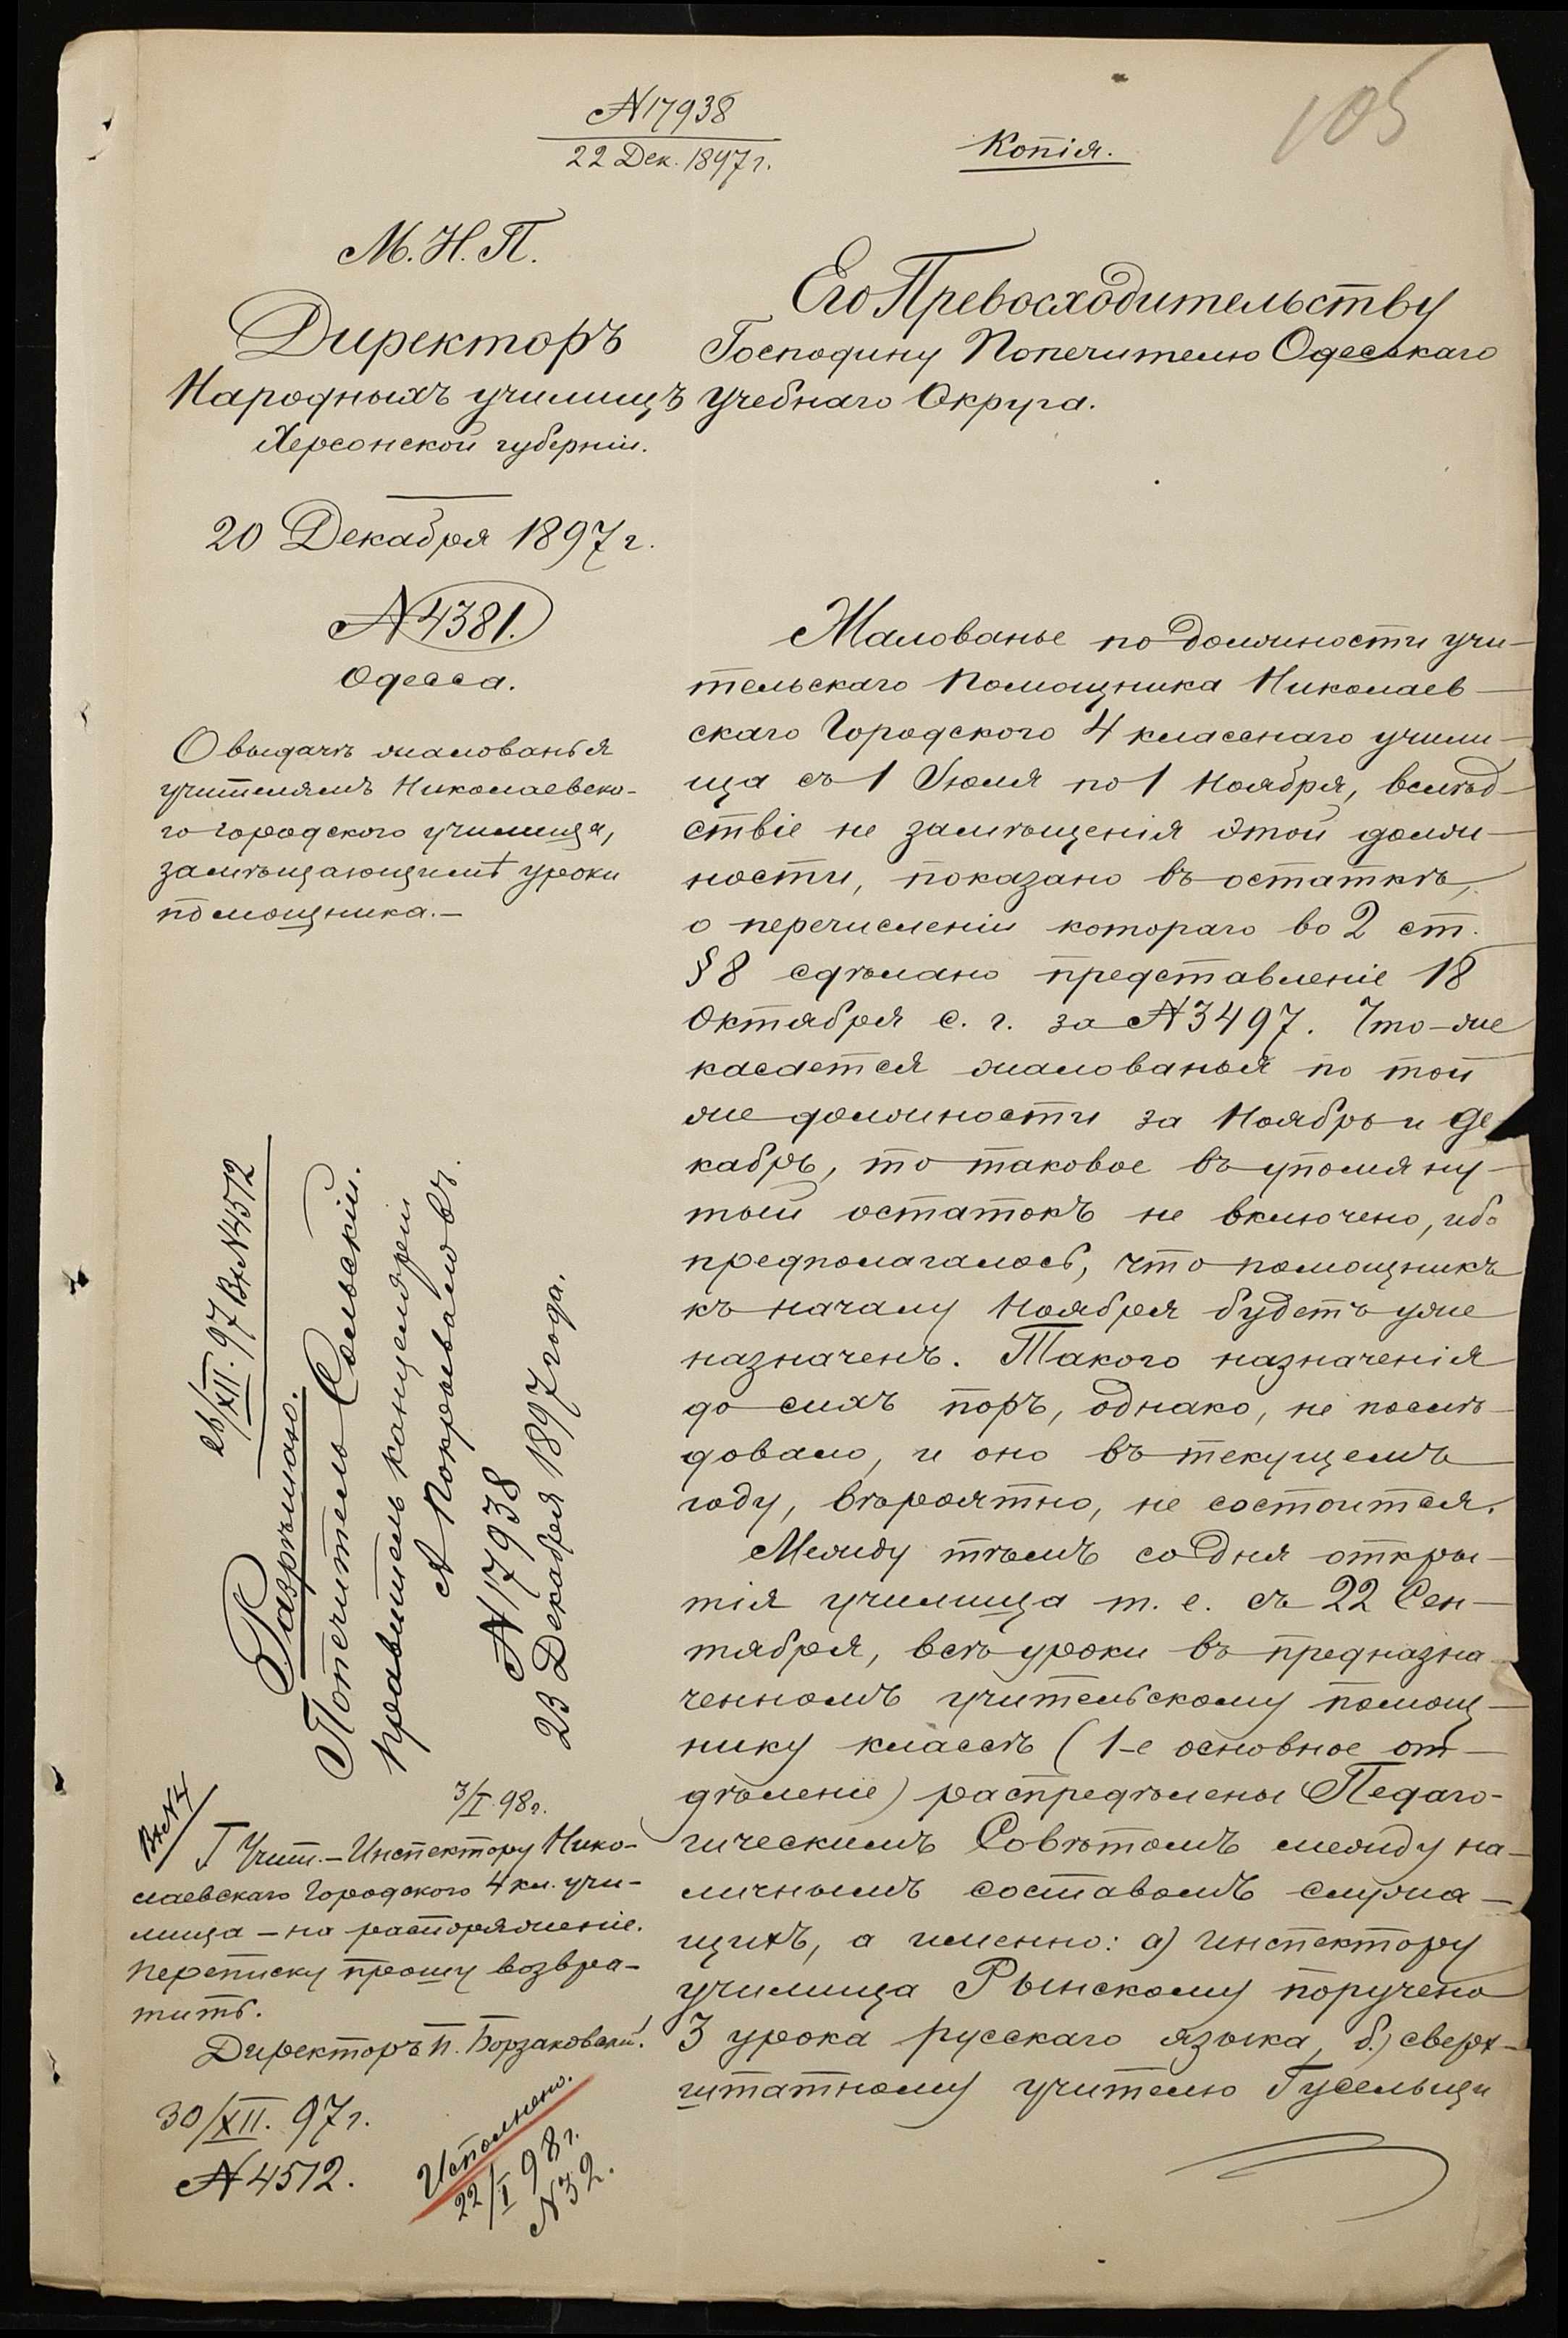 №17938
22 Дек. 1897 г.
Копія.
105
М. Н. П.
Директоръ
Народныхъ училищъ
Херсонской губерніи.
20 Декабря 1897 г.
№4381.
Одесса.
О выдачѣ жалованья
учителямъ Николаевско-
го городского училища,
замѣщающимъ уроки
помощника.—
Его Превосходительству
Господину Попечителю Одесскаго
Учебнаго Округа.
Жалованье по должности учи-
тельскаго помощника Николаев-
скаго Городского 4 класснаго учили-
ща съ 1 Іюля по 1 Ноября, вслѣд-
ствіе не замѣщенія этой долж-
ности, показано въ остаткѣ,
о перечисленіи котораго во 2 ст.
§ 8 сдѣлано представленіе 18
Октября с. г. за №3497. Что-же
касается жалованья по той
же должности за Ноябрь и Де
кабрь, то таковое въ упомяну-
тый остатокъ не включено, ибо
предполагалось, что помощникъ
къ началу Ноября будетъ уже
назначенъ. Такого назначенія
до сихъ поръ, однако, не послѣ-
довало, и оно въ текущемъ
году, вѣроятно, не состоится.
Между тѣмъ со дня откры-
тія училища т. е. съ 22 Сен-
тября, всѣ уроки въ предназна-
ченномъ учительскому помощ-
нику классѣ (1-е основное от-
дѣленіе) распредѣлены Педаго-
гическимъ Совѣтомъ между на-
личнымъ составомъ служа-
щихъ, а именно: а) инспектору
училища Рынскому поручено
3 урока русскаго языка, б.) сверх-
штатному учителю Гусельщи
XII. 97 Вх №4512
Разрѣшаю.
Попечитель Сольскій.
Правитель канцеляріи
А Покрываловъ.
№17938
23 Декабря 1897 года.
Вх №4
3/I. 98 г.
Г Учит.-Инспектору Нико-
лаевскаго Городского 4 кл. учи-
лища — на распоряженіе.
Переписку прошу возвра-
тить.
Директоръ П. Борзаковскій.
30/XII. 97 г.
№4512.
Исполнено.
22/I 98 г.
№32.